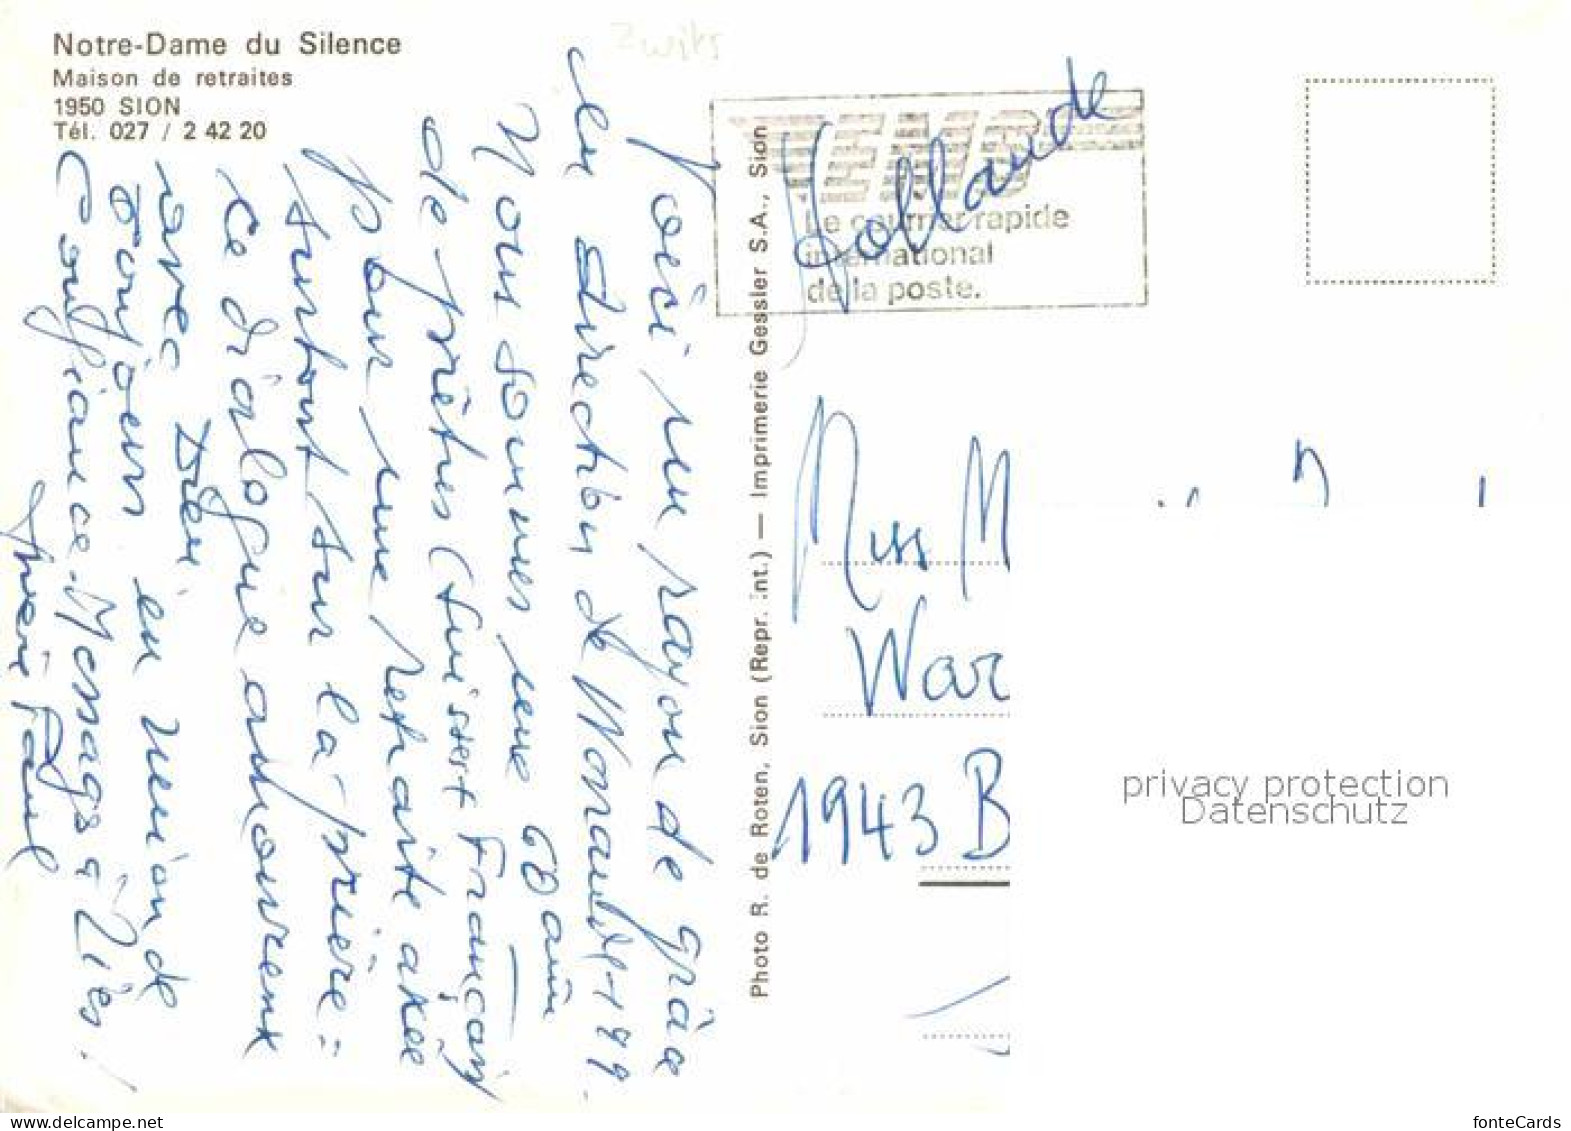 Notre-Dame du Silence
Maison de retraites
1950 SION
Tél. 027 / 2 42 20
Zwits
Voici un rayon de grâce
en direction de
Nous sommes une 60 aine
de prêtres (suisses et Français)
pour une retraite axée
surtout sur la prière =
ce dialogue amoureux
avec Dieu
Toujours en union de
Confiance. Message à
frère Paul
Photo R. de Roten, Sion (Repr. int.) — Imprimerie Gessler S.A., Sion
EMS
Le courrier rapide
international
de la poste.
Hollande
Miss M
War
1943 B
privacy protection
Datenschutz
www.delcampe.net
fonteCards